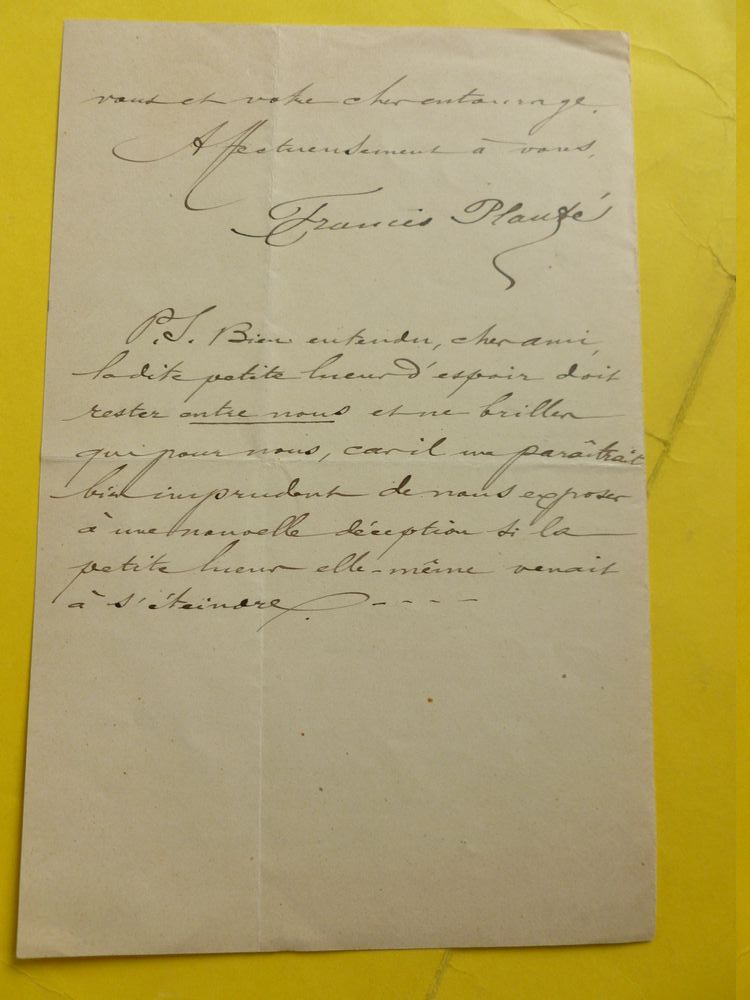 vous et votre cher entourage.
Affectueusement à vous,
Francis Planté
P.S. Bien entendu, cher ami,
ladite petite lueur d'espoir doit
rester entre nous et ne briller
que pour nous, car il me paraîtrait
bien imprudent de nous exposer
à une nouvelle déception si la
petite lueur elle-même venait
à s'éteindre. - - - -